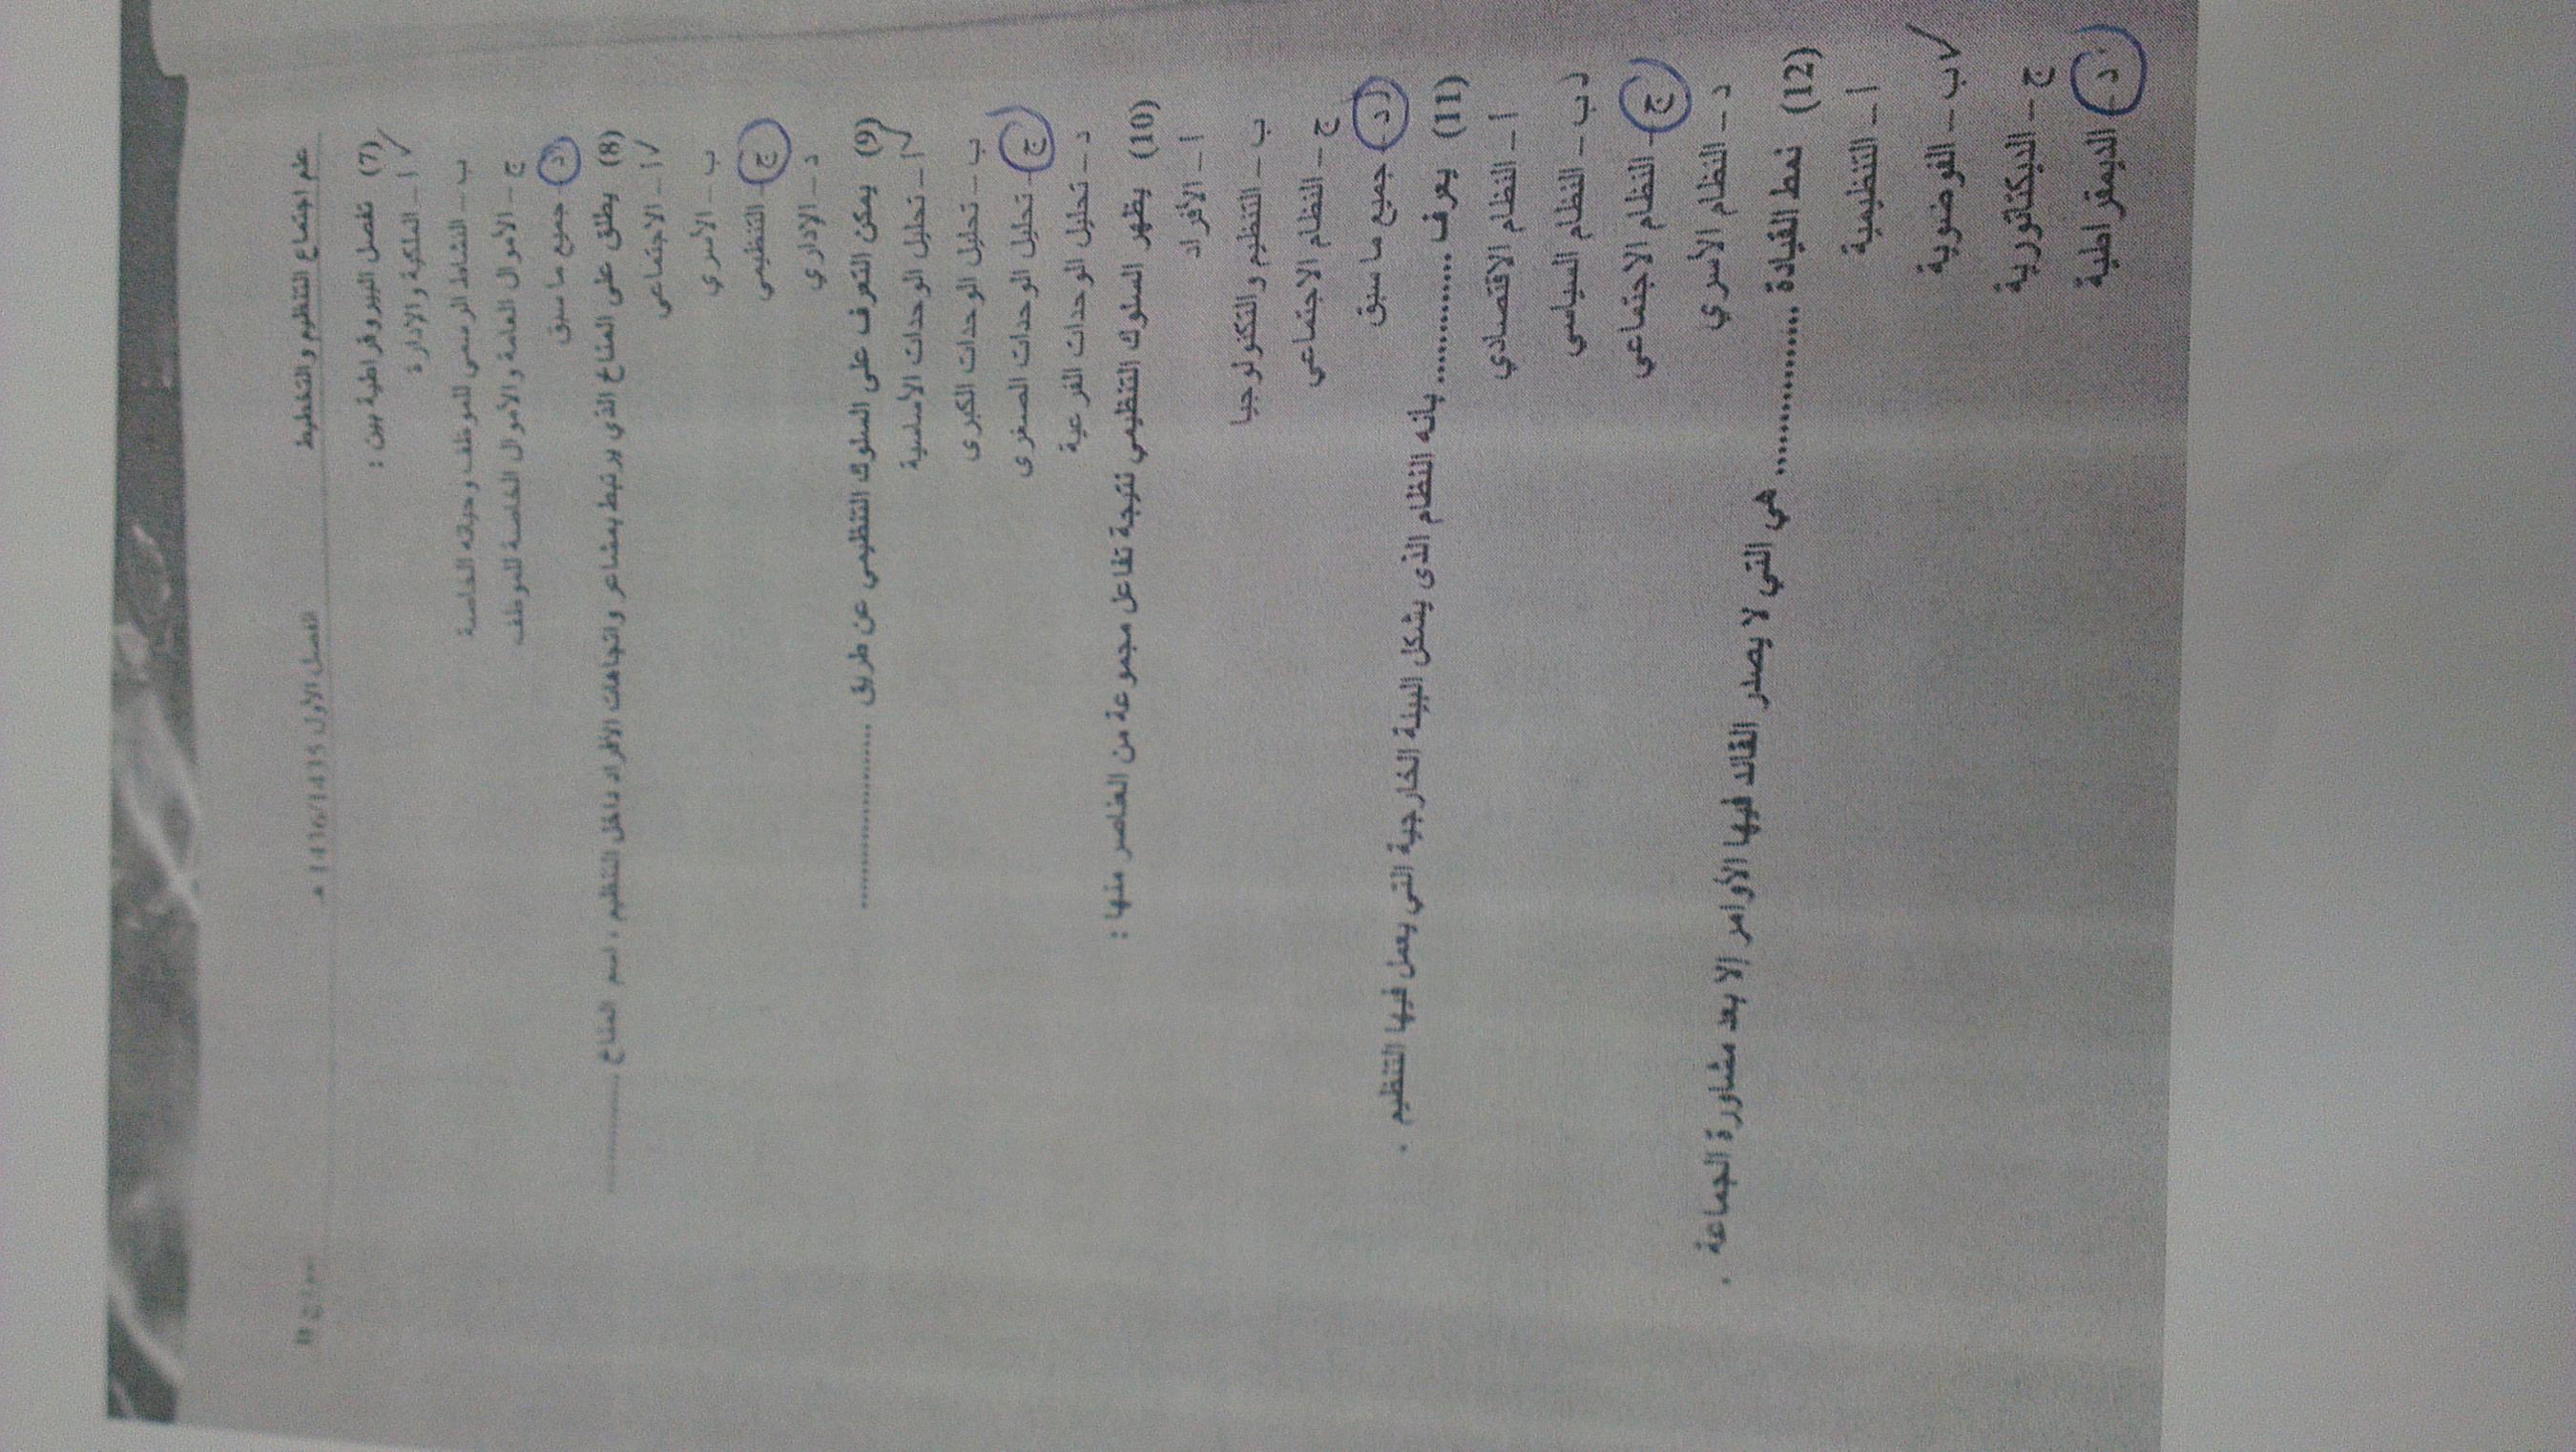 علم اجتماع التنظيم والتخطيط الفصل الأول 1436/1435 هـ
(7) تفصل البيروقراطية بين :
أ – الملكية والإدارة
ب – النشاط الرسمي للموظف وحياته الخاصة
ج – الأموال العامة والأموال الخاصة للموظف
د – جميع ما سبق
(8) يطلق على المناخ الذي يرتبط بمشاعر واتجاهات الأفراد داخل التنظيم ، اسم المناخ ..............
أ – الاجتماعي
ب – الأسري
ج – التنظيمي
د – الإداري
(9) يمكن التعرف على السلوك التنظيمي عن طريق ......................
أ – تحليل الوحدات الأساسية
ب – تحليل الوحدات الكبرى
ج – تحليل الوحدات الصغرى
د – تحليل الوحدات الفرعية
(10) يظهر السلوك التنظيمي نتيجة تفاعل مجموعة من العناصر منها :
أ – الأفراد
ب – التنظيم والتكنولوجيا
ج – النظام الاجتماعي
د – جميع ما سبق
(11) يعرف .............. بأنه النظام الذي يشكل البيئة الخارجية التي يعمل فيها التنظيم .
أ – النظام الاقتصادي
ب – النظام السياسي
ج – النظام الاجتماعي
د – النظام الأسري
(12) نمط القيادة .................. هي التي لا يصدر القائد فيها الأوامر إلا بعد مشاورة الجماعة .
أ – التنظيمية
ب – الفوضوية
ج – الديكتاتورية
د – الديمقراطية